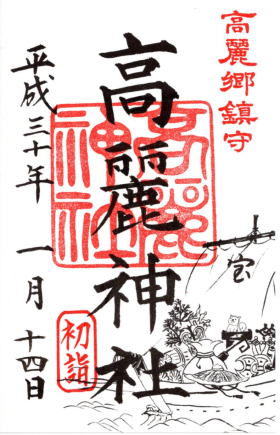 高麗郷鎮守
高麗神社
高麗神社
初詣
宝
平成三十年 一月 十四日